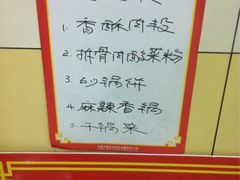 1. 香酥肉段
2. 排骨肉酸菜粉
3. 砂锅饼
4. 麻辣香锅
5. 干锅菜